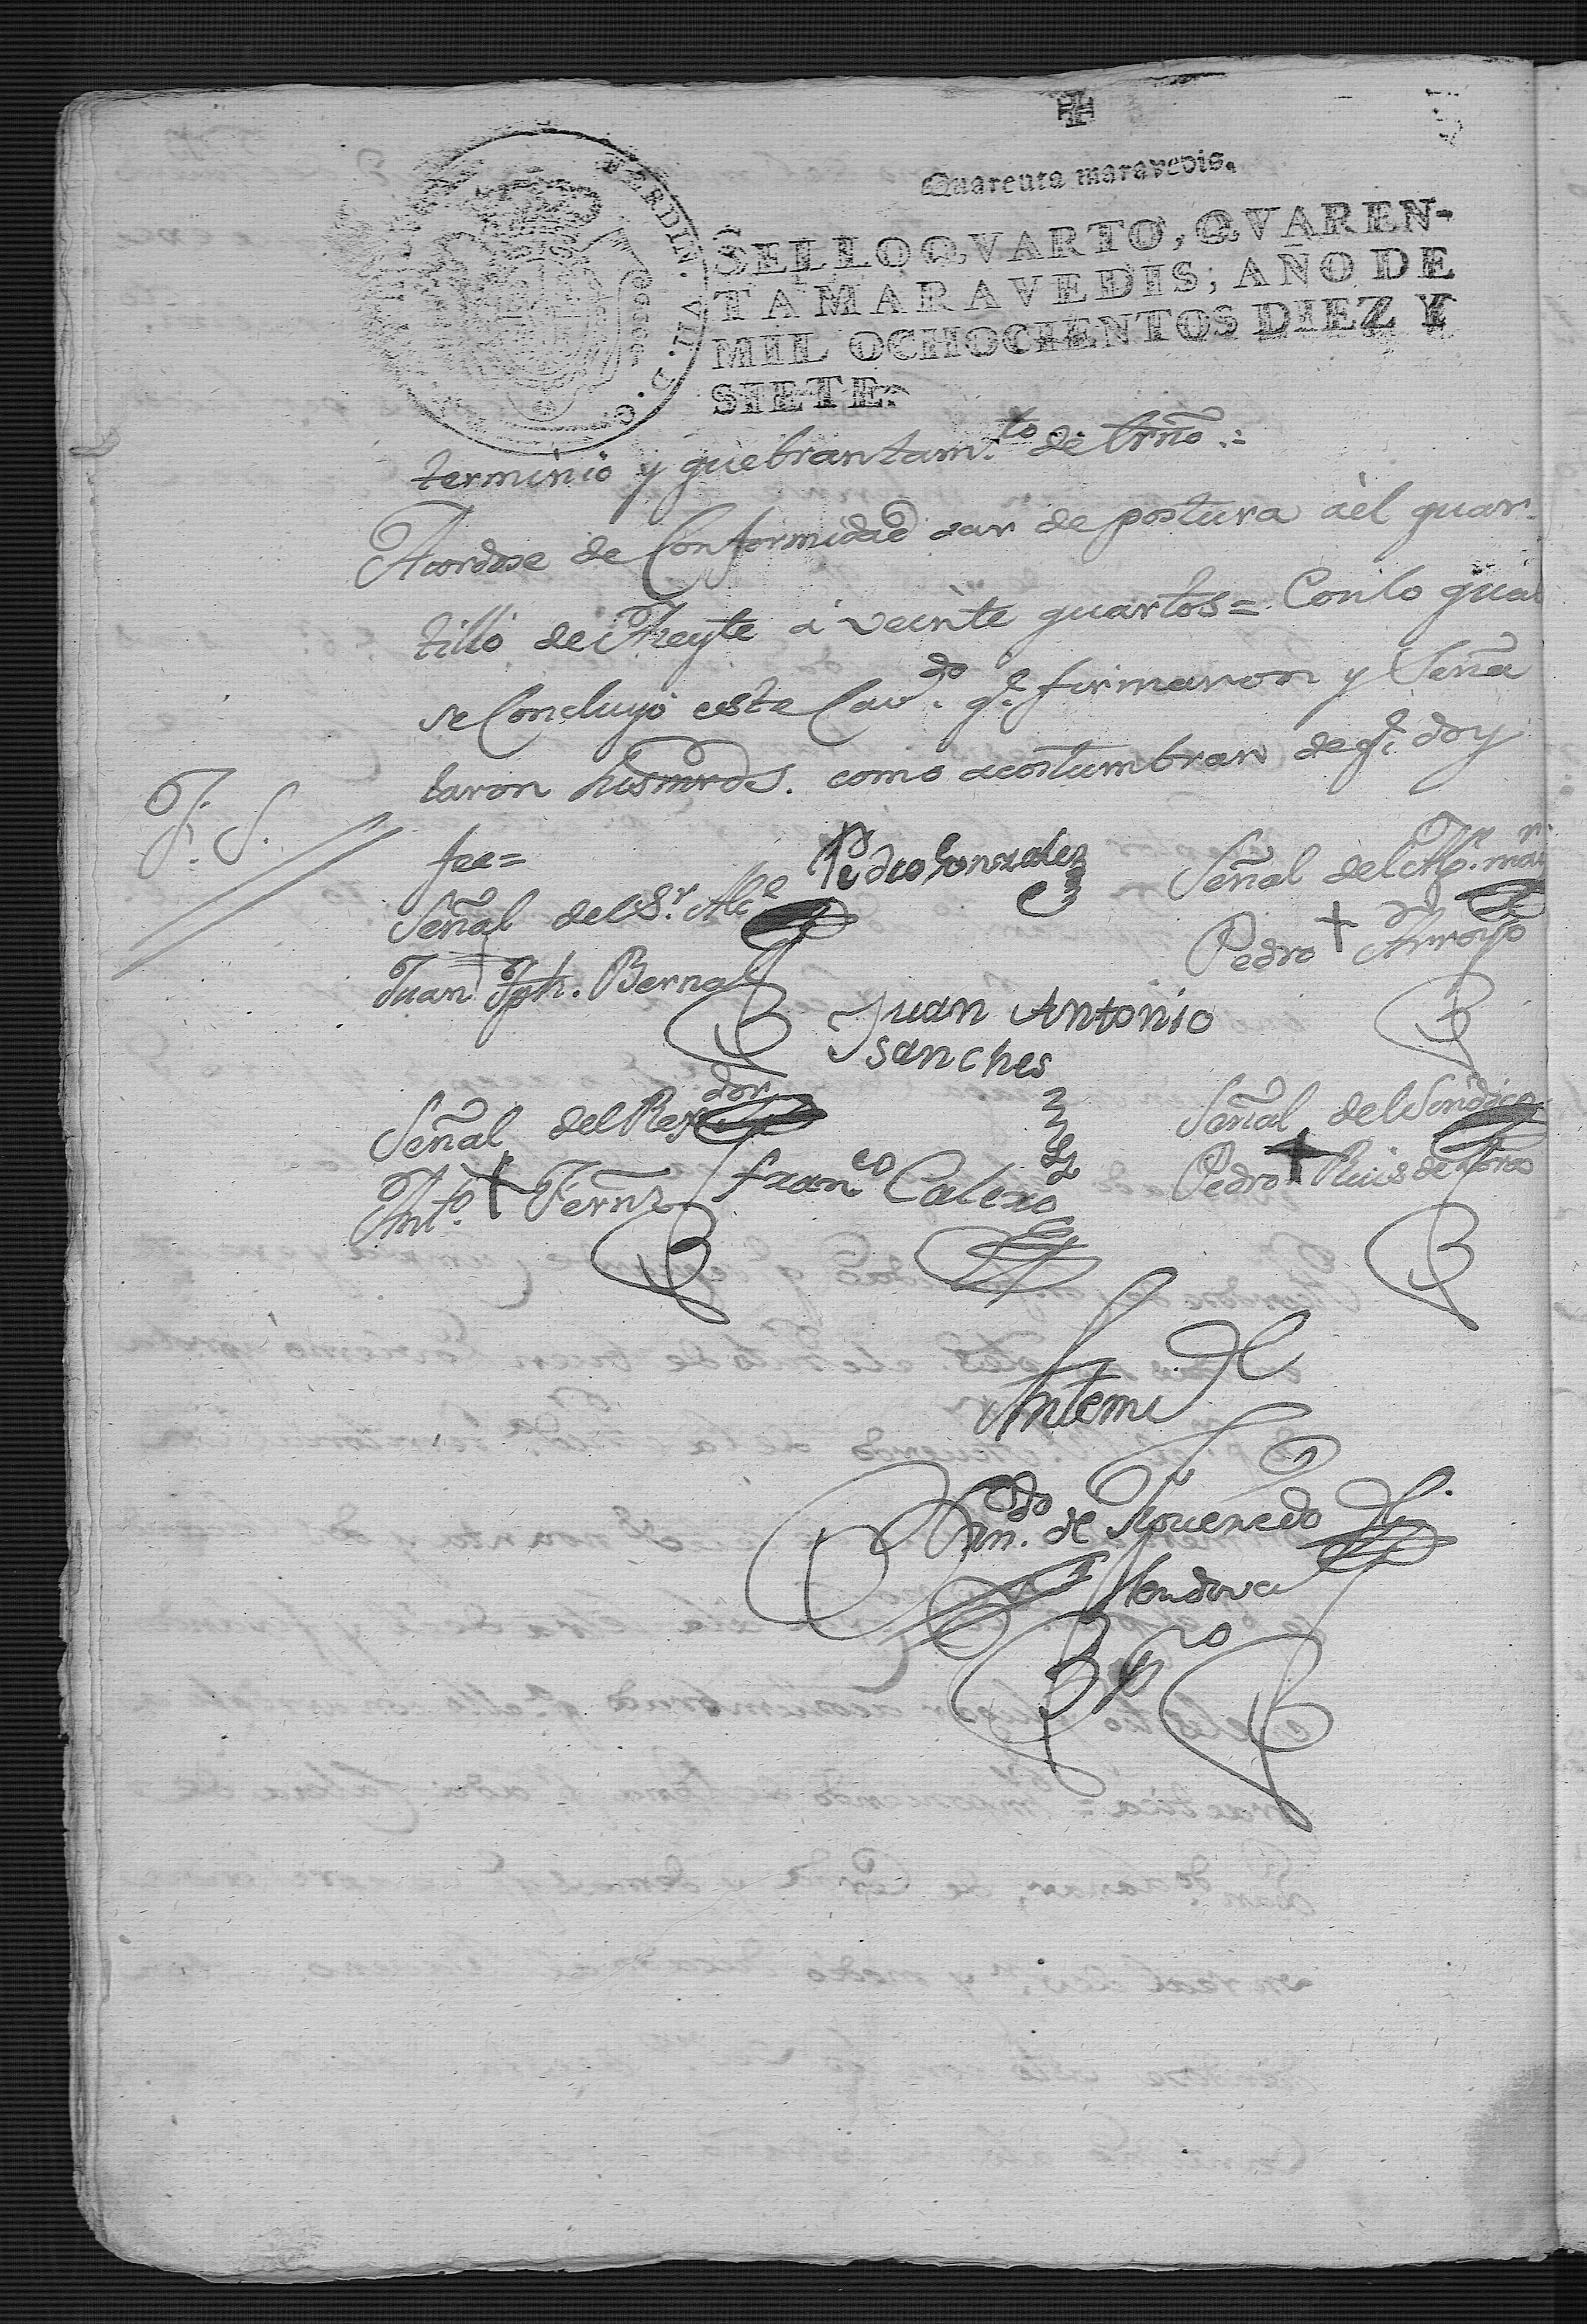 Quarenta maravedis.
SELLO QVARTO, QVAREN-
TA MARAVEDIS, AÑO DE
MIL OCHOCIENTOS DIEZ Y
SIETE.
FERDIN. VII. D. G.
termino y quebrantam.to de
Acordose de Conformidad dar de postura àel quar-
tillo de Azeyte à veinte quartos = Con lo qual
se Concluyó este Cav.do q.e firmaron y Seña
laron como acostumbran de q.e doy
fee=
Pedro Gonzalez
Señal del S.r Alc.e
Juan Jph. Bernal
Señal del
Pedro + Arroyo
Juan Antonio
Sanches
Señal del Rex.dor
Ant.o + Fern.z
Fran.co Calero
Señal del Sindico
Pedro + Ruis de
Antemi
de Figueredo
Mendova